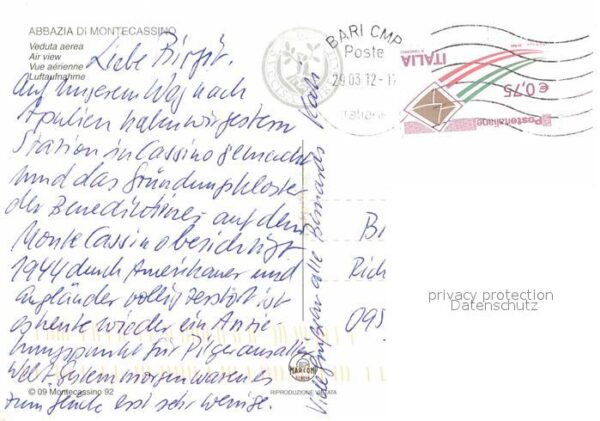 ABBAZIA DI MONTECASSINO
Veduta aerea
Air view
Vue aérienne
Luftaufnahme
Liebe Birgit.
Auf unserem Weg nach
Apulien haben wir gestern
Station in Cassino gemacht
und das Gründungskloster
der Benediktiner auf dem
Monte Cassino besichtigt
1944 durch Amerikaner und
Engländer völlig zerstört ist
es heute wieder ein Anzie
hungspunkt für Pilger aus aller
Welt. Gestern morgen waren es
zum Glück erst sehr wenige.
© 09 Montecassino 92
RIPRODUZIONE VIETATA
Viele Grüßen alle Bismarcks
MARCONI
BARI CMP
Poste
29.03.12-1
Italiane
ITALIA
€0,75
Posteitaliane
B
Rich
095
privacy protection
Datenschutz